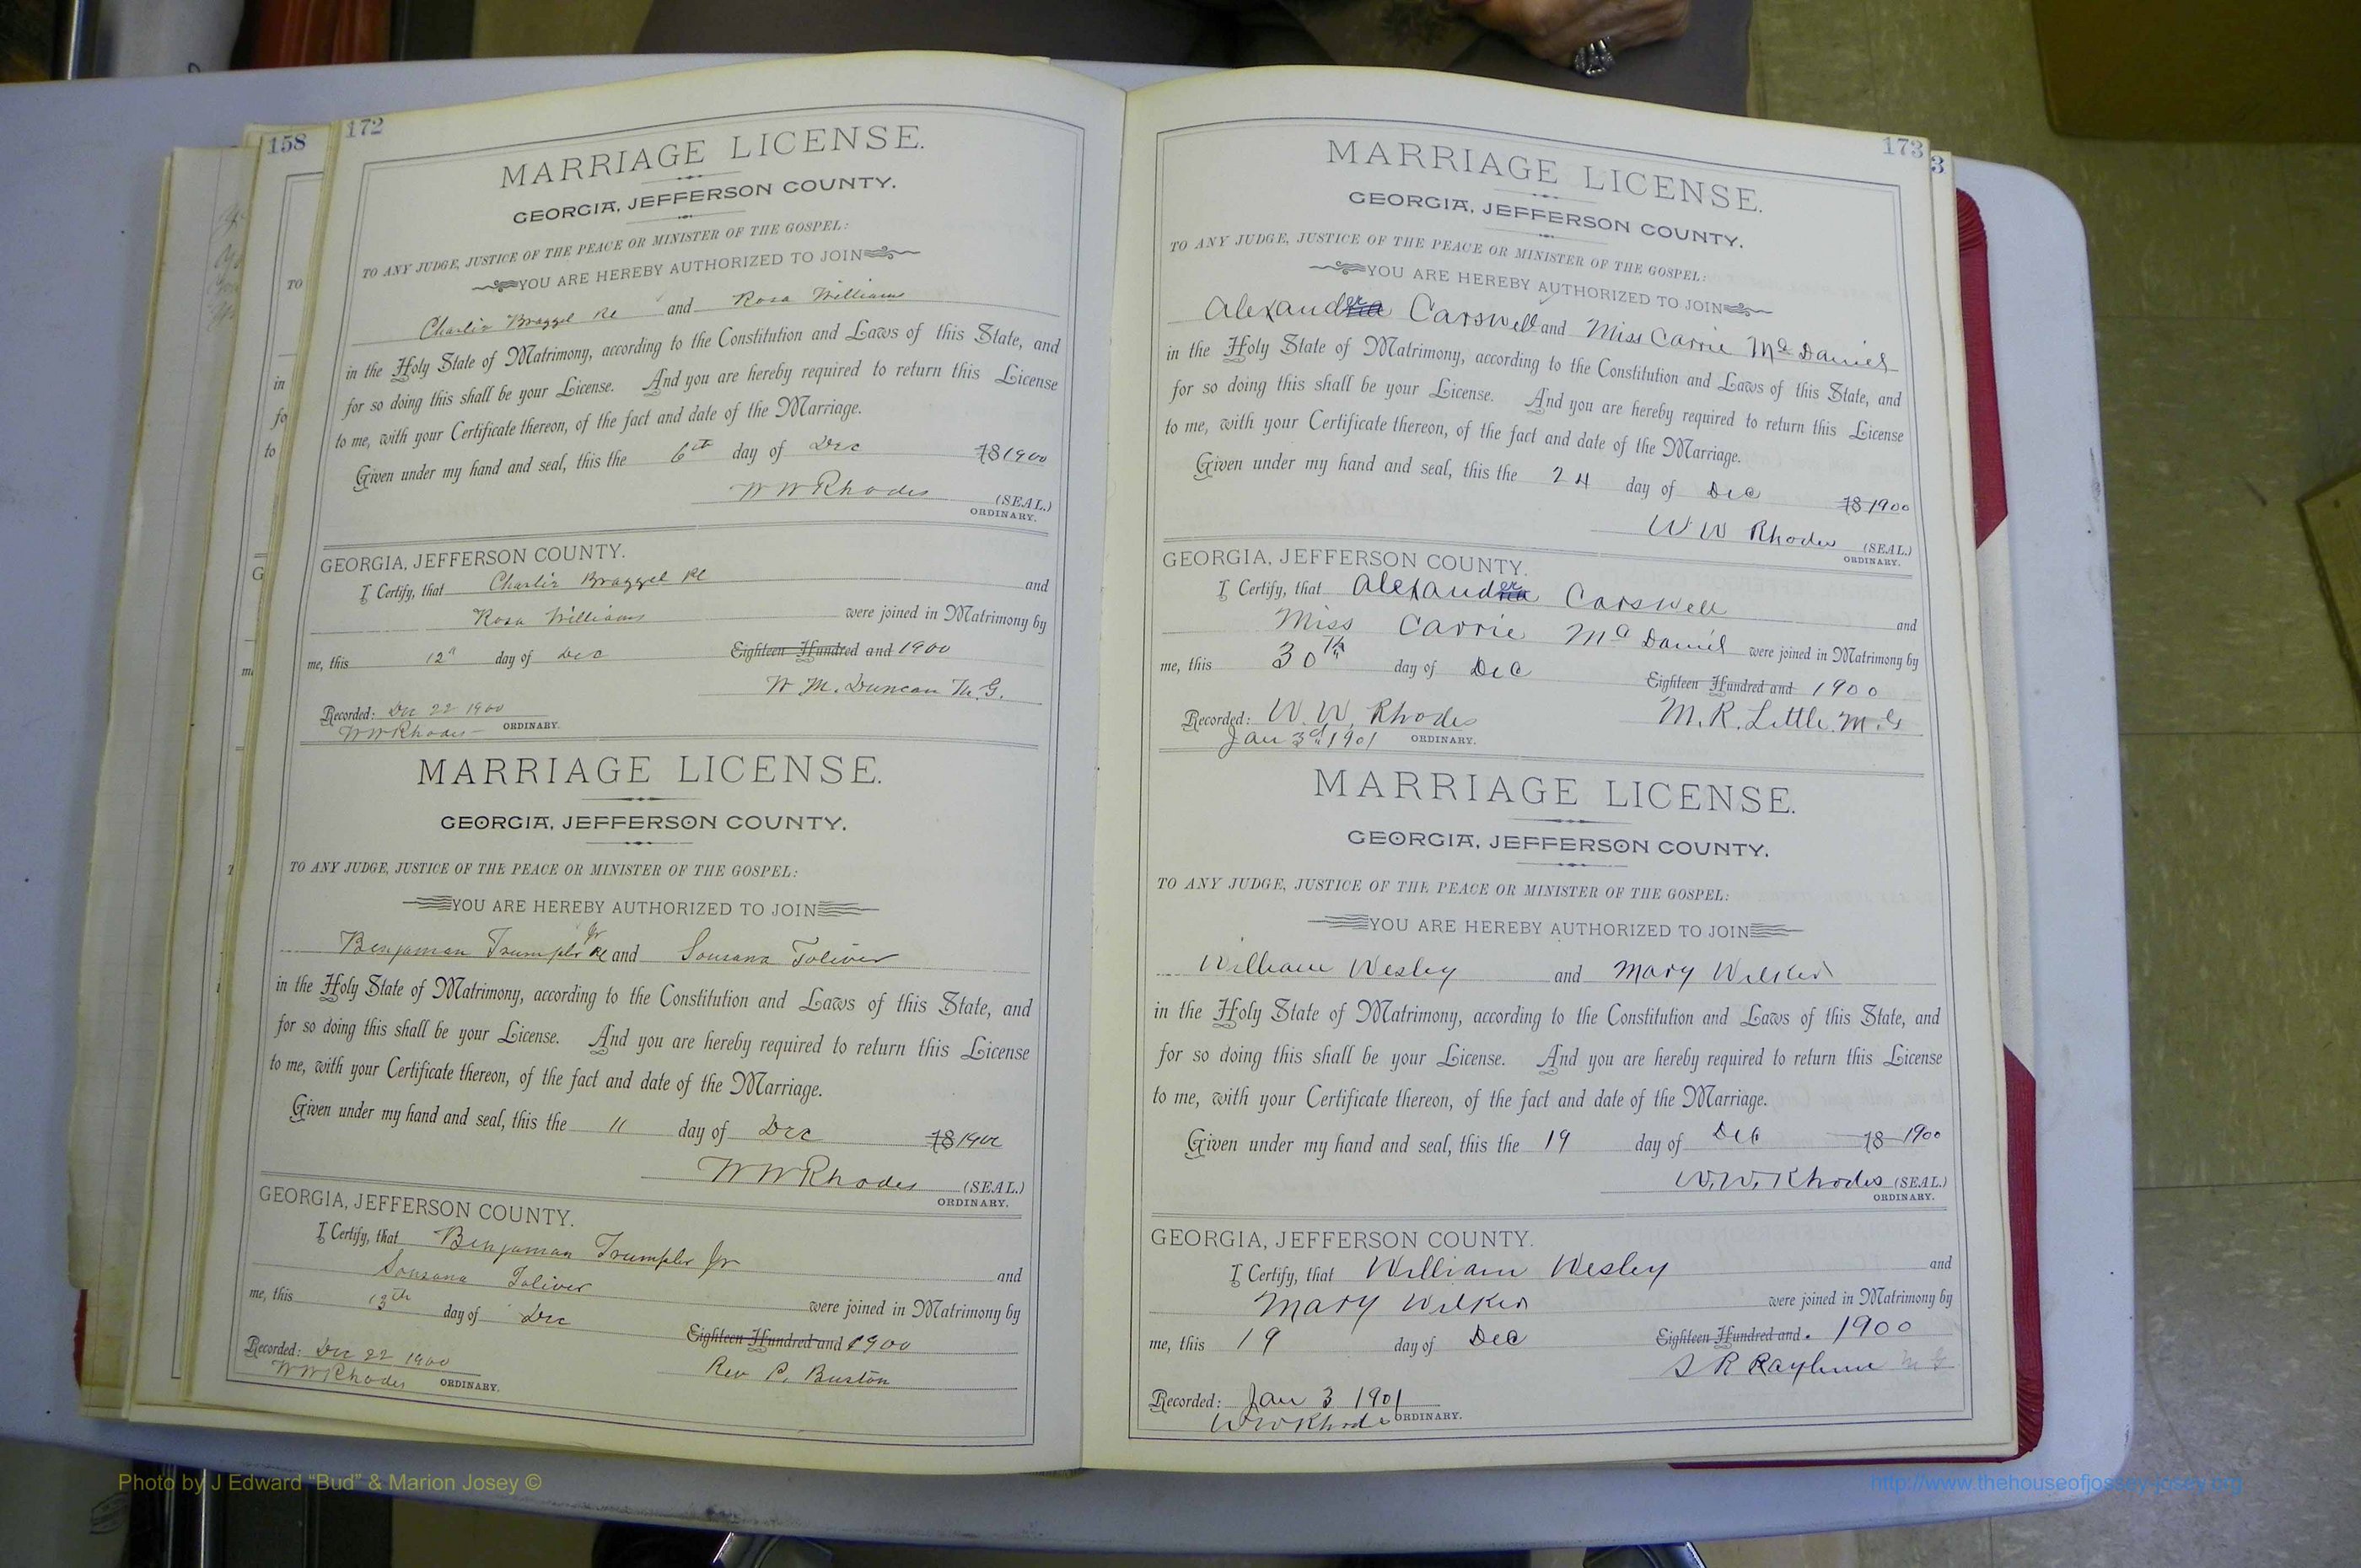 158
172
MARRIAGE LICENSE.
GEORGIA, JEFFERSON COUNTY.
TO ANY JUDGE, JUSTICE OF THE PEACE OR MINISTER OF THE GOSPEL:
YOU ARE HEREBY AUTHORIZED TO JOIN
Charlie Braggel and Rosa Williams
in the Holy State of Matrimony, according to the Constitution and Laws of this State, and
for so doing this shall be your License. And you are hereby required to return this License
to me, with your Certificate thereon, of the fact and date of the Marriage.
Given under my hand and seal, this the 6th day of Dec 18 1900
W W Rhodes (SEAL.)
ORDINARY.
GEORGIA, JEFFERSON COUNTY.
I Certify, that Charlie Braggel and
Rosa Williams were joined in Matrimony by
me, this 12th day of Dec Eighteen Hundred and 1900
W M. Duncan M.G.
Recorded: Dec 22 1900
W W Rhodes ORDINARY.
MARRIAGE LICENSE.
GEORGIA, JEFFERSON COUNTY.
TO ANY JUDGE, JUSTICE OF THE PEACE OR MINISTER OF THE GOSPEL:
YOU ARE HEREBY AUTHORIZED TO JOIN
Benjaman Trumpler Jr and Sousana Toliver
in the Holy State of Matrimony, according to the Constitution and Laws of this State, and
for so doing this shall be your License. And you are hereby required to return this License
to me, with your Certificate thereon, of the fact and date of the Marriage.
Given under my hand and seal, this the 11 day of Dec 18 1900
W W Rhodes (SEAL.)
ORDINARY.
GEORGIA, JEFFERSON COUNTY.
I Certify, that Benjaman Trumpler Jr
Sousana Toliver and
were joined in Matrimony by
me, this 13th day of Dec Eighteen Hundred and 1900
Rev P. Burton
Recorded: Dec 22 1900
W W Rhodes ORDINARY.
173
3
MARRIAGE LICENSE.
GEORGIA, JEFFERSON COUNTY.
TO ANY JUDGE, JUSTICE OF THE PEACE OR MINISTER OF THE GOSPEL:
YOU ARE HEREBY AUTHORIZED TO JOIN
Alexander Carswell and Miss Carrie McDaniel
in the Holy State of Matrimony, according to the Constitution and Laws of this State, and
for so doing this shall be your License. And you are hereby required to return this License
to me, with your Certificate thereon, of the fact and date of the Marriage.
Given under my hand and seal, this the 24 day of Dec 18 1900
W W Rhodes (SEAL.)
ORDINARY.
GEORGIA, JEFFERSON COUNTY.
I Certify, that Alexander Carswell and
Miss Carrie McDaniel were joined in Matrimony by
me, this 30th day of Dec Eighteen Hundred and 1900
M. R. Little M.G
Recorded: W. W. Rhodes
Jan 3rd 1901 ORDINARY.
MARRIAGE LICENSE.
GEORGIA, JEFFERSON COUNTY.
TO ANY JUDGE, JUSTICE OF THE PEACE OR MINISTER OF THE GOSPEL:
YOU ARE HEREBY AUTHORIZED TO JOIN
William Wesley and Mary Wilker
in the Holy State of Matrimony, according to the Constitution and Laws of this State, and
for so doing this shall be your License. And you are hereby required to return this License
to me, with your Certificate thereon, of the fact and date of the Marriage.
Given under my hand and seal, this the 19 day of Dec 18 1900
W. W. Rhodes (SEAL.)
ORDINARY.
GEORGIA, JEFFERSON COUNTY.
I Certify, that William Wesley and
Mary Wilker were joined in Matrimony by
me, this 19 day of Dec Eighteen Hundred and 1900
S R M G
Recorded: Jan 3 1901
W W Rhodes ORDINARY.
Photo by J Edward “Bud” & Marion Josey ©
http://www.thehouseofjossey-josey.org